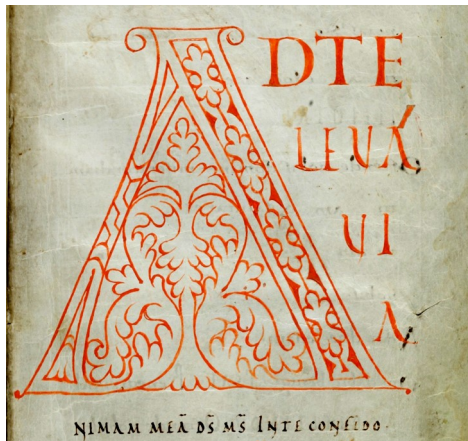 ADTE
LEUÁ
UI
A
NIMAM MEĀ DS̄ MS̄ INTE CONFIDO